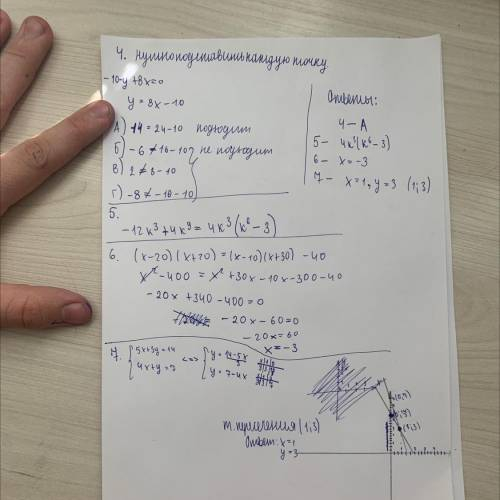 4. нужно подставить каждую точку
-10-y+8x=0
y = 8x-10
А) 14 = 24-10 подходит
Б) -6 ≠ 16-10 не подходит
В) 2 ≠ 8-10
Г) -8 ≠ -18-10
Ответы:
4 - А
5 - 4k³(k⁶-3)
6 - x = -3
7 - x=1, y=3 (1;3)
5.
-12k³+4k⁹ = 4k³(k⁶-3)
6. (x-20)(x+20)=(x-10)(x+30)-40
x²-400 = x²+30x-10x-300-40
-20x+340-400=0
-20x-60=0
-20x=60
x=-3
7. {5x+3y=14 <=> {y=14-5x/3
{4x+y=7 {y=7-4x
(1;3)
т. пересечения (1;3)
Ответ: x=1
y=3